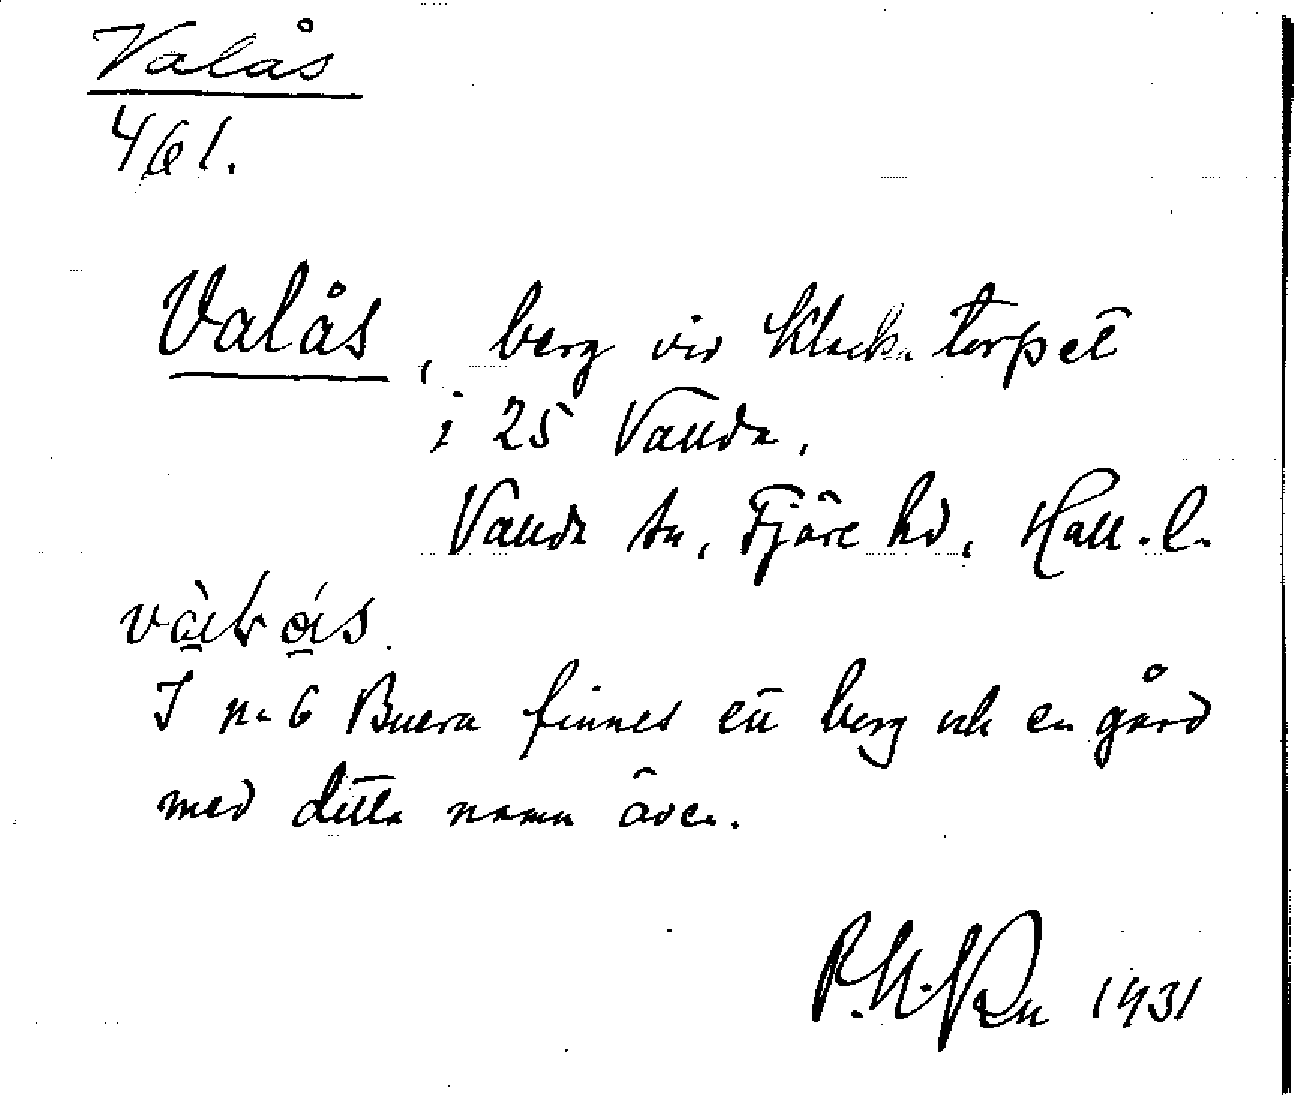 Valås
461.
Valås, berg vid Klocka torpet
i 25 Vallda.
Vallda sn, Fjäre hd, Hall. l.
I nr 6 Buera finnes ett berg och en gård
med detta namn även.
1931